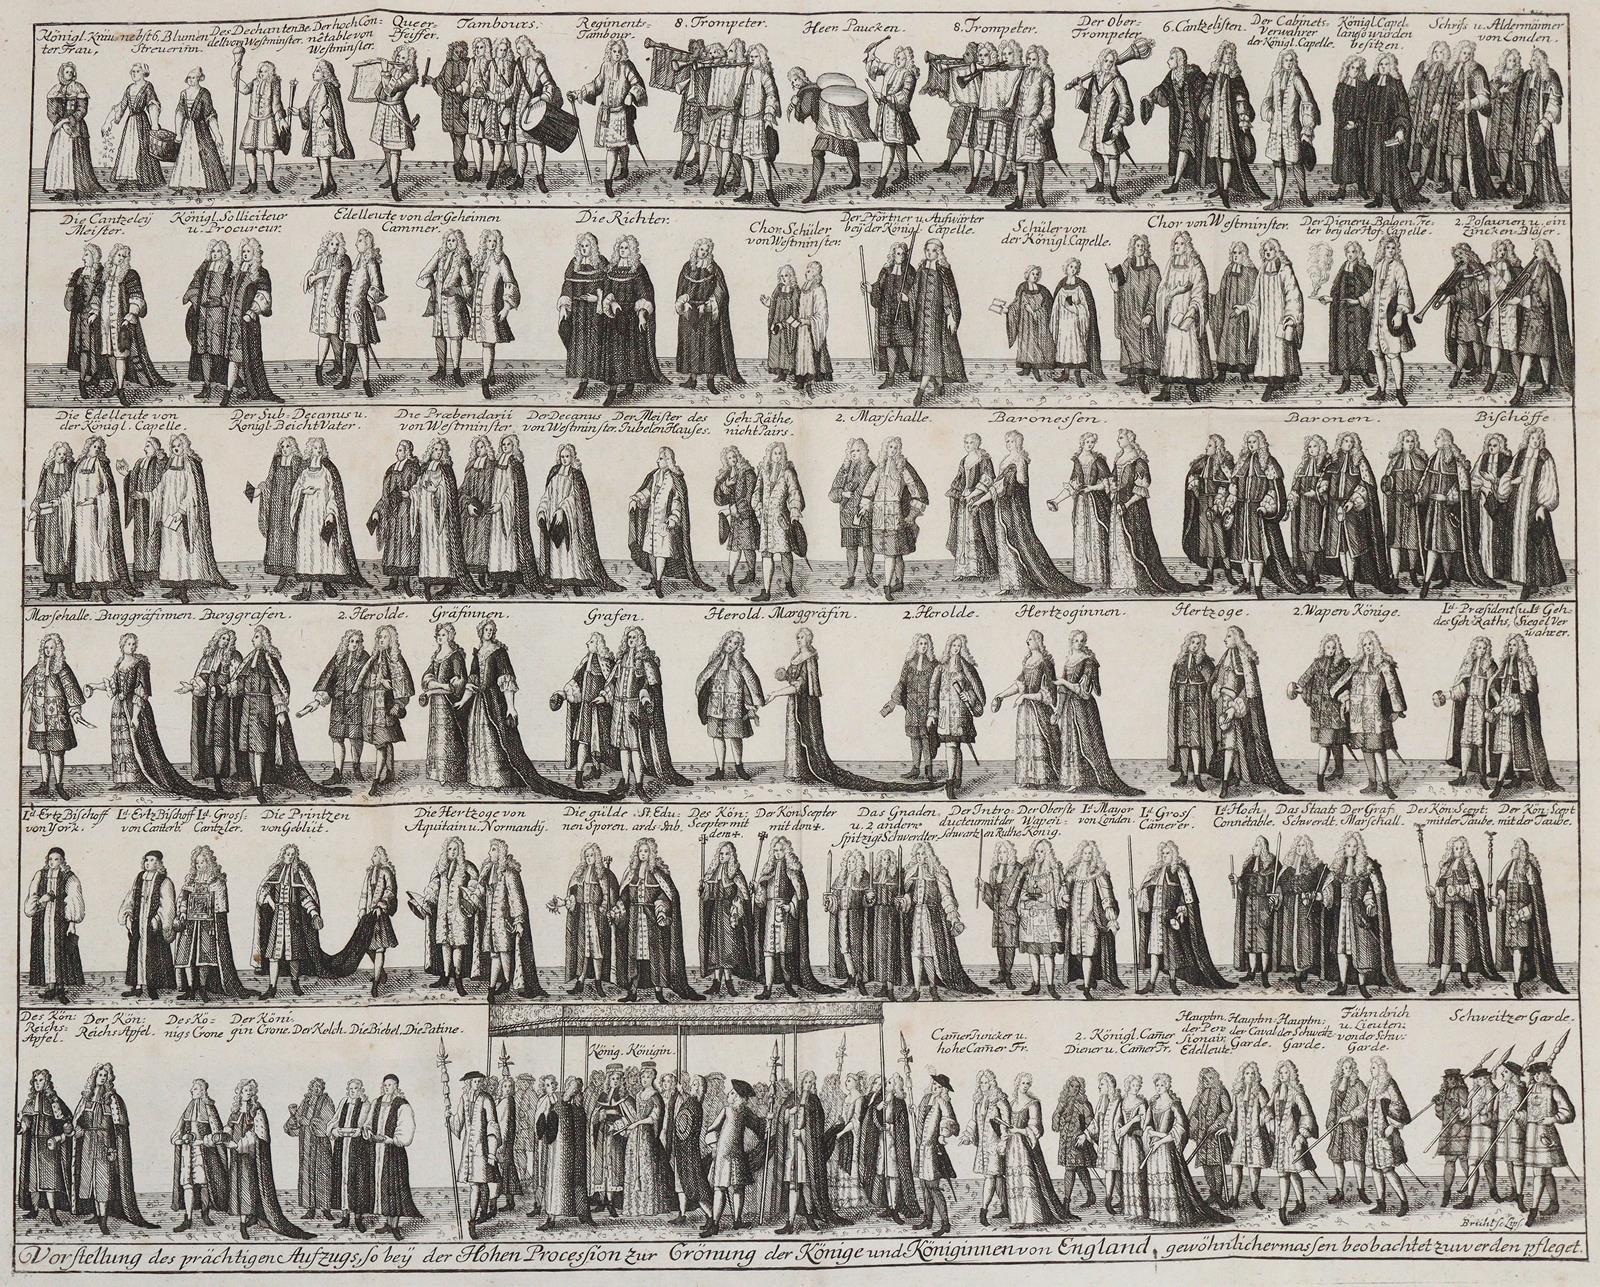 Königl. Kräu-
ter Frau,
nebst 6. Blumen
Streuerin.
Des Dechanten Be-
dell von Westminster.
Der hoch Con-
nétable von
Westminster.
Queer-
Pfeiffer.
Tambours.
Regiments-
Tambour.
8. Trompeter.
Heer Paucken.
8. Trompeter.
Der Ober-
Trompeter
6. Cantzelisten.
Der Cabinets-
Verwahrer
der Königl. Capelle.
Königl. Capel
besitzen.
u. Aldermänner
von Londen.
Die Cantzeleÿ
Meister.
Königl. Solliciteur
u. Procureur.
Edelleute von der Geheimen
Cammer.
Die Richter.
Chor-Schüler
von Westminster.
Der Pförtner u. Aufwärter
beÿ der Königl. Capelle.
Schüler von
der Königl. Capelle.
Chor von Westminster.
Der Diener u. Balgen-Tre-
ter beÿ der Hof-Capelle.
2. Posaunen u. ein
Zincken-Bläser.
Die Edelleute von
der Königl. Capelle.
Der Sub-Decanus u.
Königl. Beicht Vater.
Die Præbendarii
von Westminster.
Der Decanus
von Westminster.
Der Meister des
Jubelen Hauses.
Geh. Räthe,
nicht Pairs.
2. Marschalle.
Baronessen.
Baronen
Bischöffe.
Marschalle.
Burggräfinnen.
Burggrafen.
2. Herolde.
Gräfinnen.
Grafen.
Herold.
Marggräfin.
2. Herolde.
Hertzoginnen.
Hertzoge.
2. Wapen-Könige.
Ld. Præsident u. Ld. Geh-
des Geh. Raths, Siegel Ver
wahrer.
Ld. Ertz Bischoff
von York.
Ld. Ertz Bischoff
von Canterb.
Ld. Gros-
Cantzler.
Die Printzen
von Geblüt.
Die Hertzoge von
Aquitain u. Normandÿ.
Die gülde-
nen Sporen.
St. Edu-
ards-Stab.
Des Kön:
Scepter mit
dem +.
Der Kön Scepter
mit dem +.
Das Gnaden
u. 2. andere
spitzige Schwerdter.
Der Intro-
ducteur mit der
schwartzen Ruthe
Der Oberste
Wapen-
König.
Ld. Mayor
von Londen.
Ld. Gros
Camerer.
Ld. Hoch-
Connétable.
Das Staats
Schwerdt.
Der Graf
Marschall.
Des Kön: Scept:
mit der Taube.
Der Kön: Scept
mit der Taube.
Des Kön:
Reichs-
Apfel.
Der Kön:
Reichs Apfel.
Des Kö-
nigs Crone
Der Köni-
gin Crone.
Der Kelch.
Die Biebel.
Die Patine.
König. Königin.
Camer Jwicker u.
hohe Camer Fr.
2. Königl. Camer
Diener u. Camer Fr.
Hauptm.
der Pen-
sionair
Edelleute.
Hauptm:
der Caval.
Garde.
Hauptm:
der Schweitz-
Garde.
Fähndrich
u. Lieuten:
von der Schw:
Garde.
Schweitzer Garde.
Brühl sc. Lips.
Vorstellung des prächtigen Aufzugs, so beÿ der Hohen Procession zur Crönung der Könige und Königinnen von England, gewöhnlicher massen beobachtet zu werden pfleget.